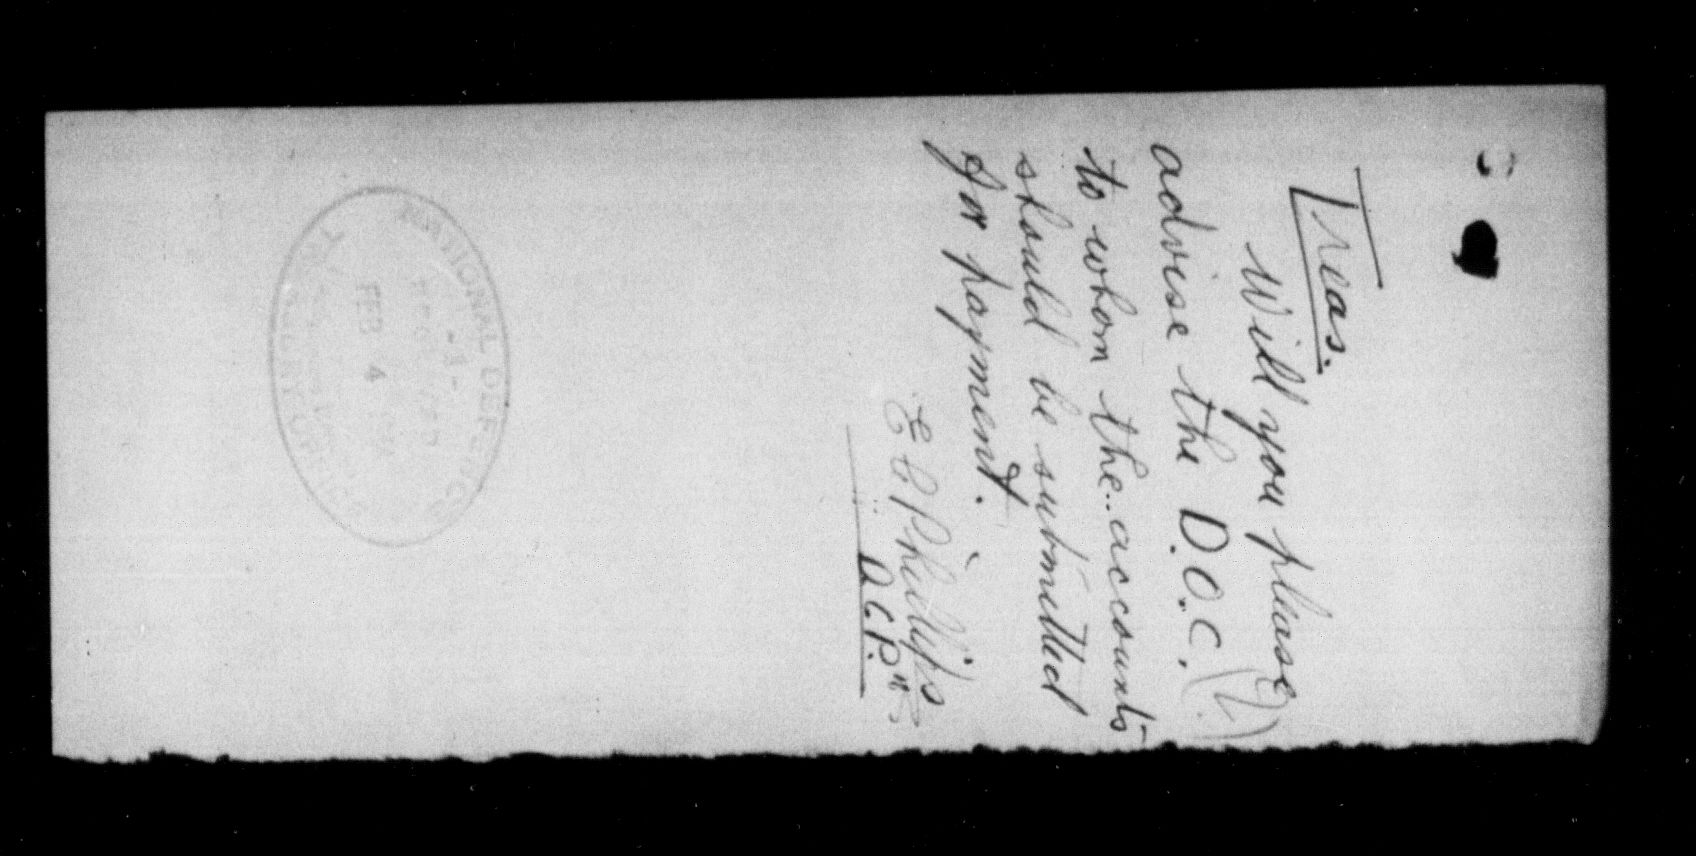 Treas.
Will you please
advise the D.O.C. (2)
to whom the accounts
should be submitted
for payment.
E C Phillips
NATIONAL DEFENCE
-1-
FEB 4